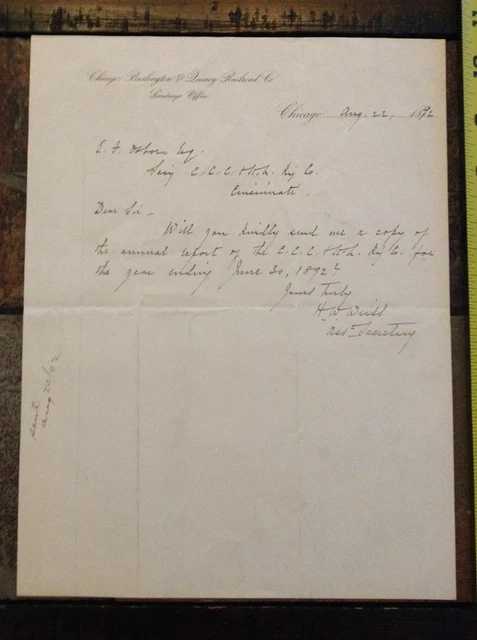 Chicago, Burlington & Quincy Railroad Co
Secretary's Office
Chicago Aug. 22, 1892
E. F. Osborn Esq.
Secy C. C. C. & St. L. Ry Co.
Cincinnati.
Dear Sir –
Will you kindly send me a copy of
the annual report of the C. C. C. & St. L. Ry Co. for
the year ending June 30, 1892?
Yours Truly
H. W. Weiss
Asst Secretary
Sent
Aug 23/92